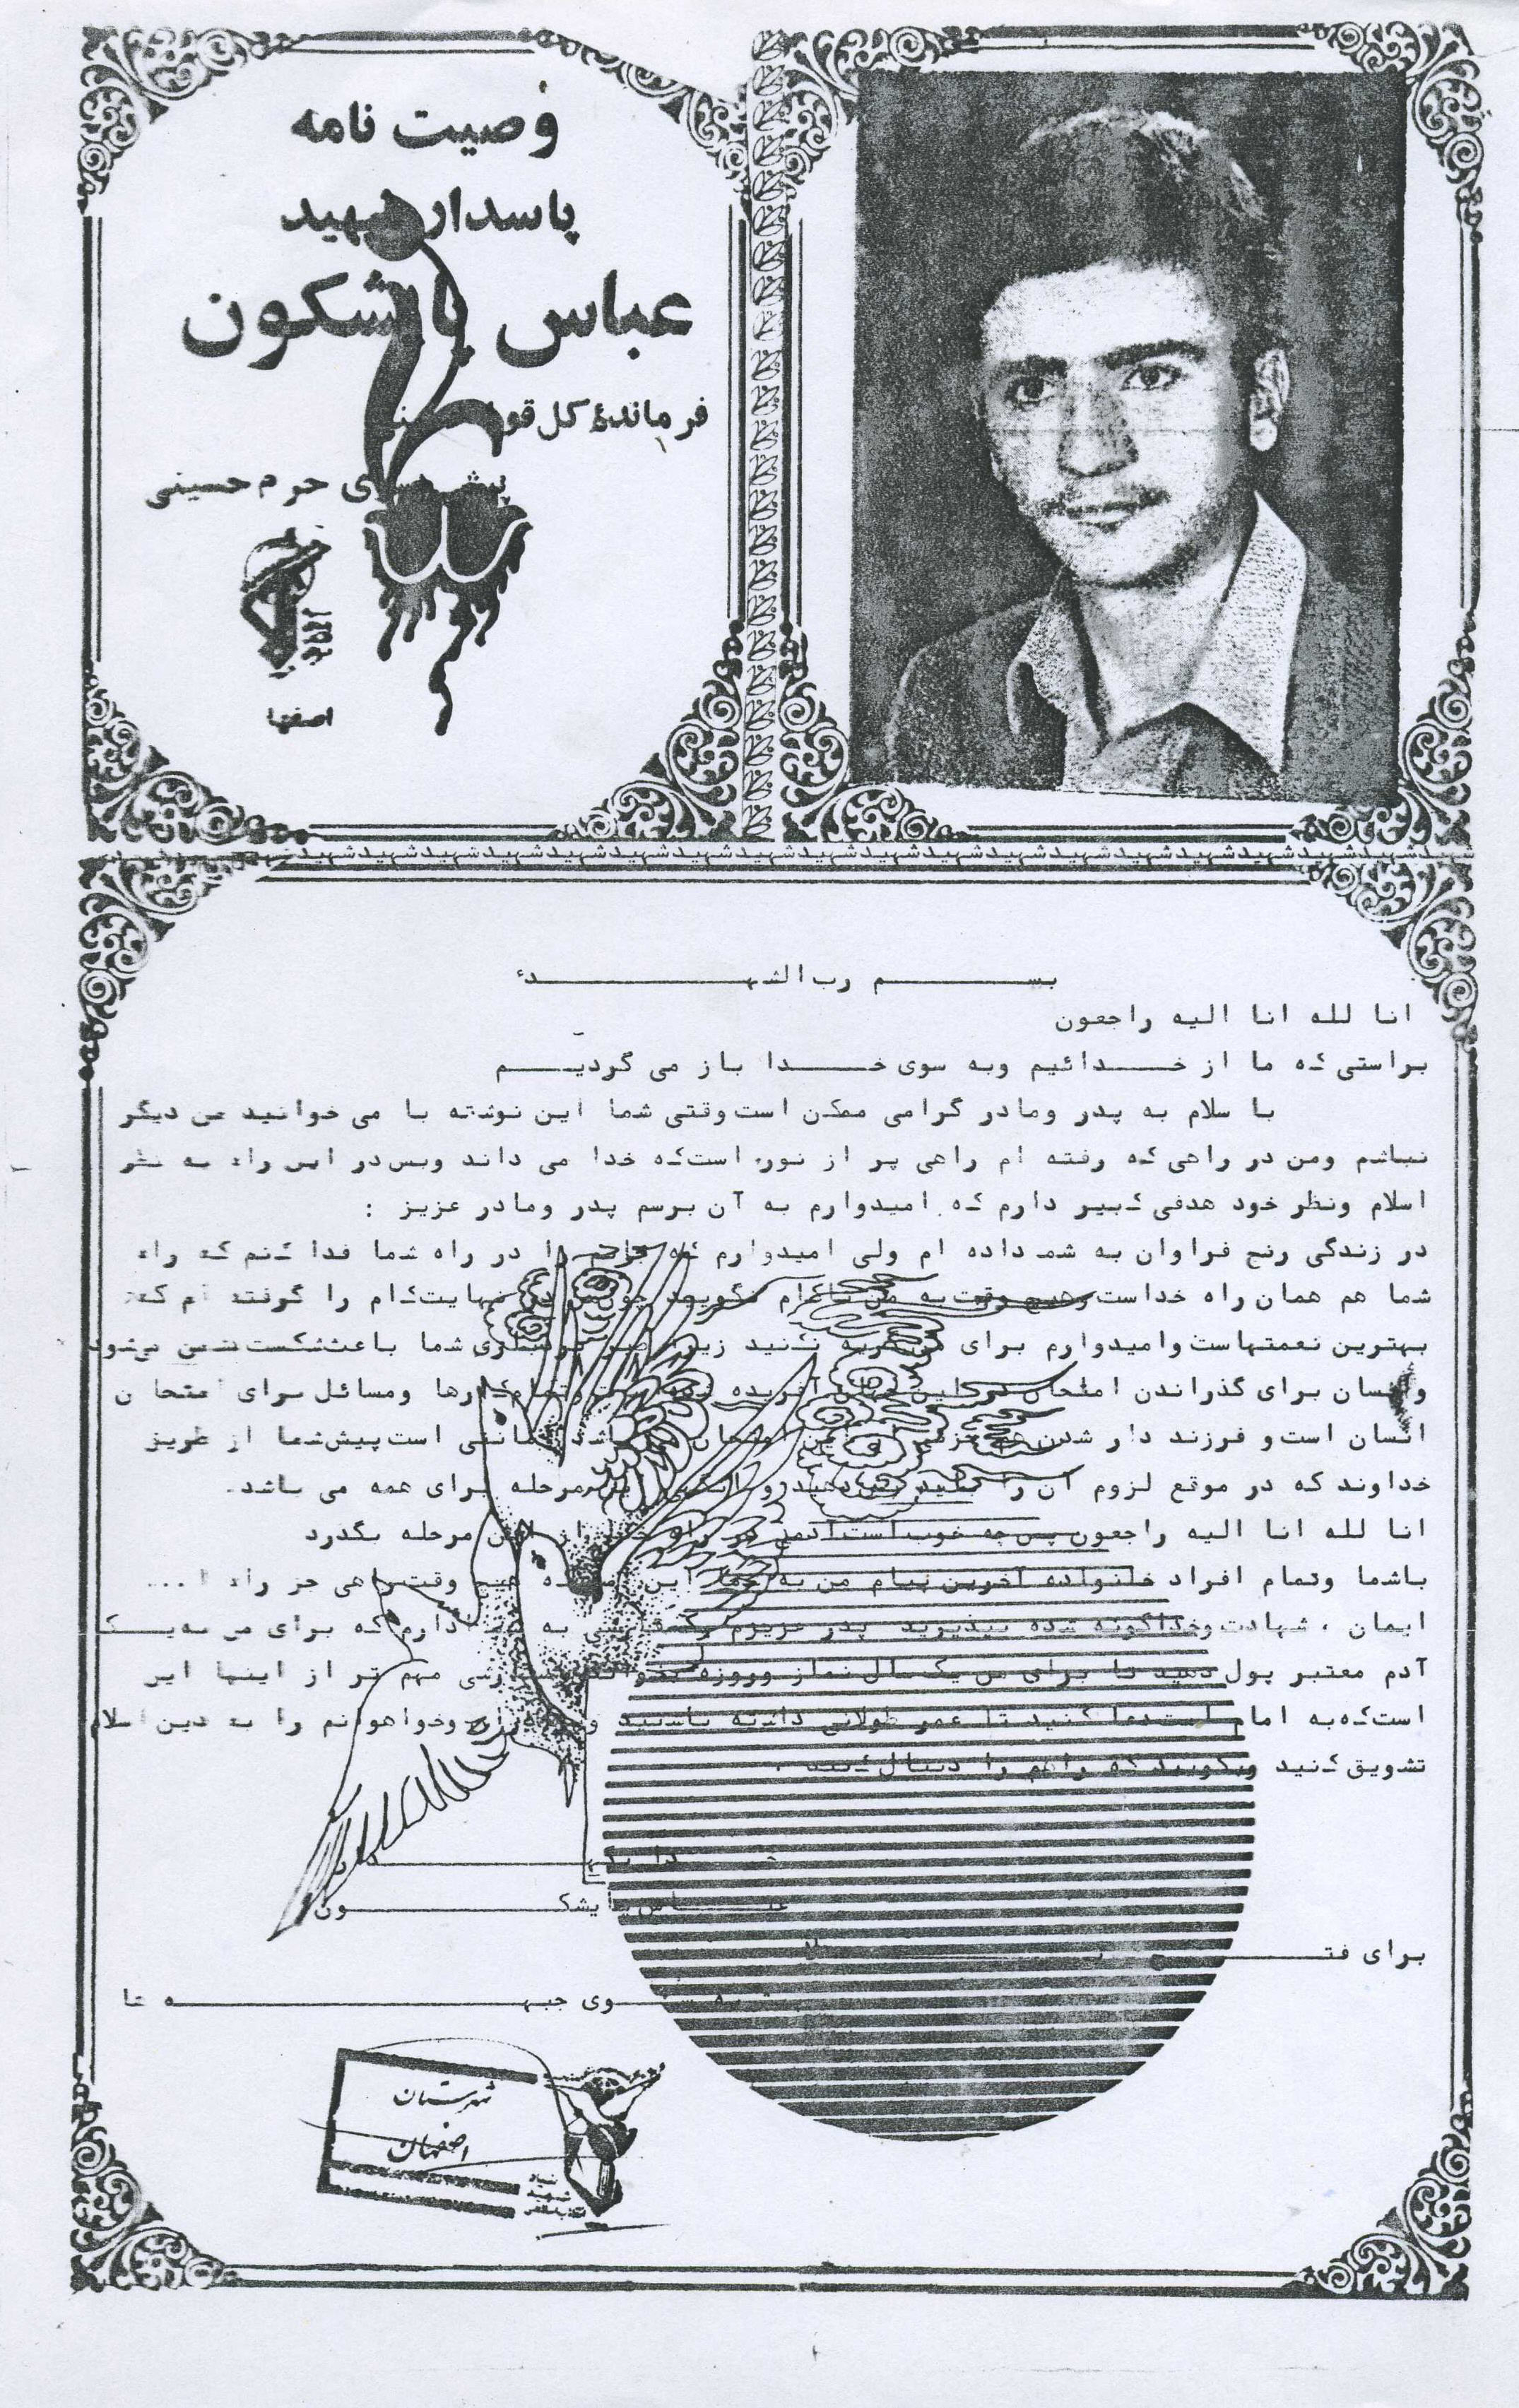 وصیت نامه
پاسدار شهید
عباس پایشکون
فرماندهٔ کل قوا
حرم حسینی
اصفهان
شهید شهید شهید شهید شهید شهید شهید شهید شهید شهید شهید شهید شهید شهید شهید شهید شهید شهید
بسم رب الشهدء
انا لله انا الیه راجعون
براستی که ما از خدائیم وبه سوی خدا باز می گردیم
با سلام به پدر ومادر گرامی ممکن است وقتی شما این نوشته با می خوانید من دیگر
نباشم ومن در راهی که رفته ام راهی پر از نور است که خدا می داند وبس در این راه به نظر
اسلام ونظر خود هدفی کبیر دارم که امیدوارم به آن برسم پدر ومادر عزیز :
در زندگی رنج فراوان به شما داده ام ولی امیدوارم که جانم را در راه شما فدا کنم که راه
شما هم همان راه خداست وهیچ وقت به من ناکام نگوید چون من در نهایت کام را گرفته ام که
بهترین نعمتهاست وامیدوارم برای من گریه نکنید زیرا شما باعث شکست دشمن می شود
وانسان برای گذراندن امتحان در این جهان آفریده کارها ومسائل برای امتحان
انسان است و فرزند دار شدن هم جزئی از این امتحان می باشد امانتی است پیش شما از طریق
خداوند که در موقع لزوم آن را باید پس دهید و این مرحله برای همه می باشد.
انا لله انا الیه راجعون پس چه خوب است آدمی در راه خدا از این مرحله بگذرد
باشما وتمام افراد خانواده آخرین پیام من به شما این هیچ وقت راهی جز راه ا...
ایمان ، شهادت وخداگونه شده نپذیرید پدر عزیزم یک سفارشی به شما دارم که برای من به یک
آدم معتبر پول دهید تا برای من یک سال نماز وروزه بخواند سفارشی مهم تر از اینها این
است که به امام امت دعا کنید تا عمر طولانی داشته باشید و برادران وخواهرانم را به دین اسلام
تشویق کنید وبگویید که راهم را دنبال کنید .
خدا نگهدار
عباس پایشکون
برای فتح
سوی جبهه ها
شهرستان
اصفهان
بنیاد
شهید
انقلاب اسلامی